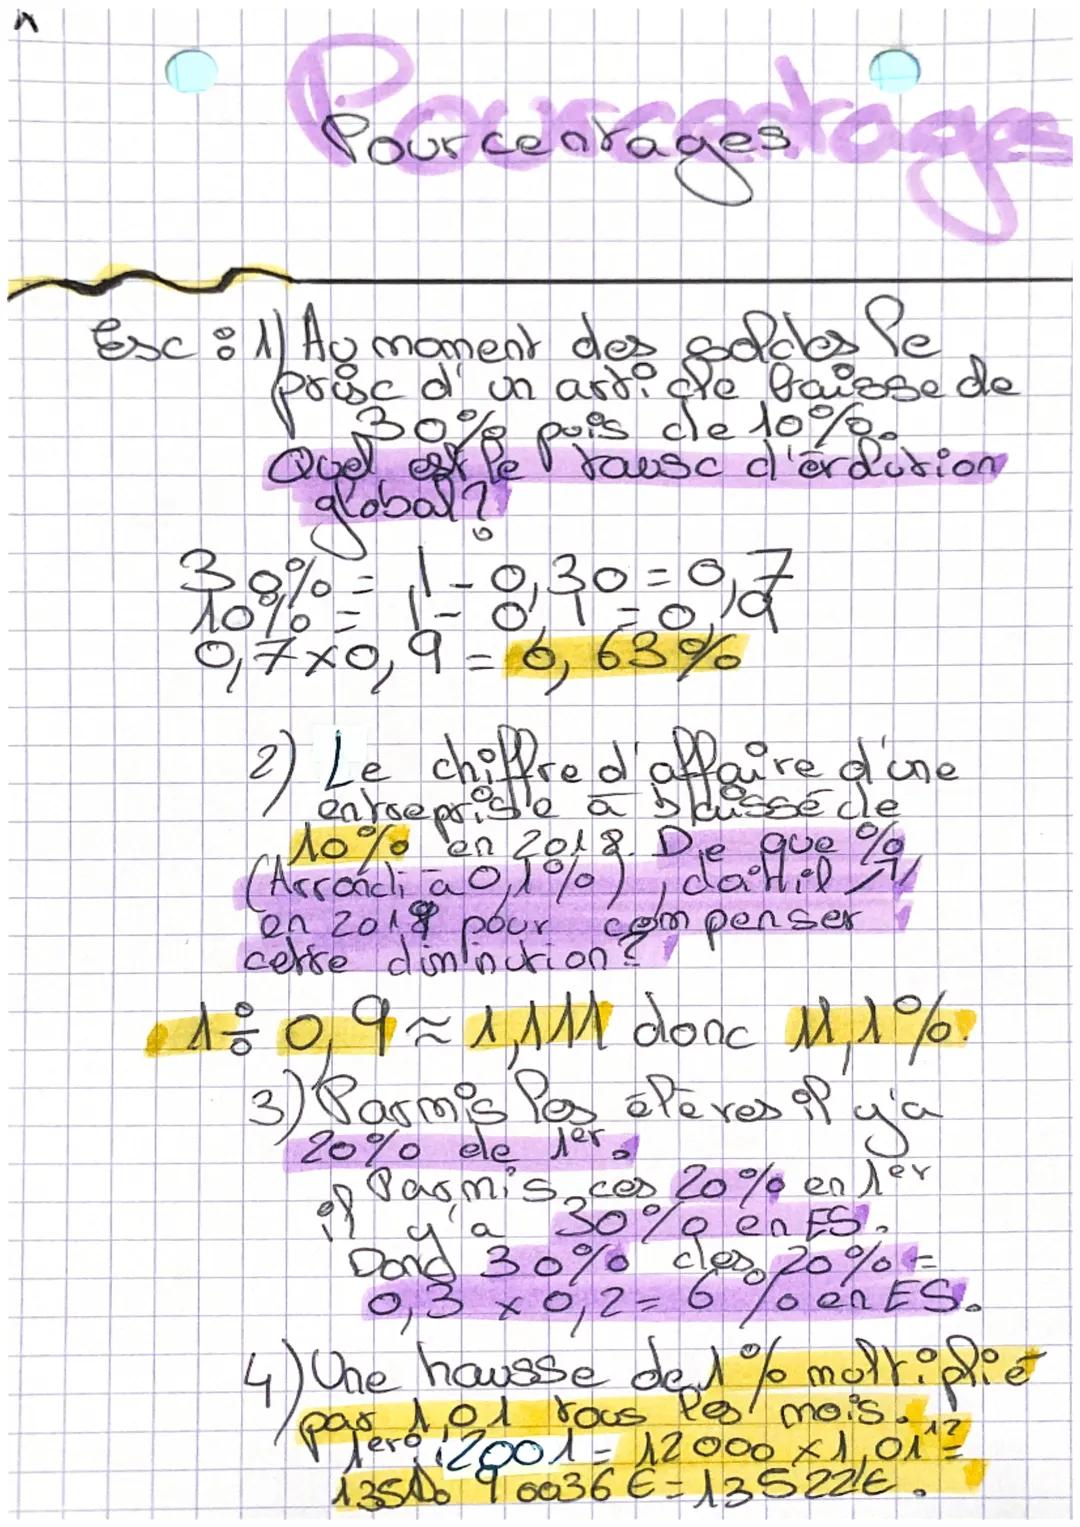 Pourcentages
Pourcentages
Esc : 1) Au moment des soldes le
prisc d'un article baisse de
30% puis de 10%.
Quel est le tausc d'érdution
global ?
30% = 1 - 0,30 = 0,7
10% = 1 - 0,1 = 0,9
0,7 x 0,9 = 6,63%
2) Le chiffre d'affaire d'une
entreprise a baissé de
10% en 2018. De que %
(Arrondi à 0,1%), doit il ↗
en 2018 pour compenser
cette diminution ?
1 ÷ 0,9 ≈ 1,111 donc 11,1%.
3) Parmis les élèves il y'a
20% de 1er.
Parmis ces 20% en 1er
il y'a 30% en ES.
Dond 30% des 20% =
0,3 x 0,2 = 6 % en ES.
4) Une hausse de 1% moltiplie
par 1,01 tous les mois.
1er 2001 = 12000 x 1,01¹² =
9 0036 € = 13522€.